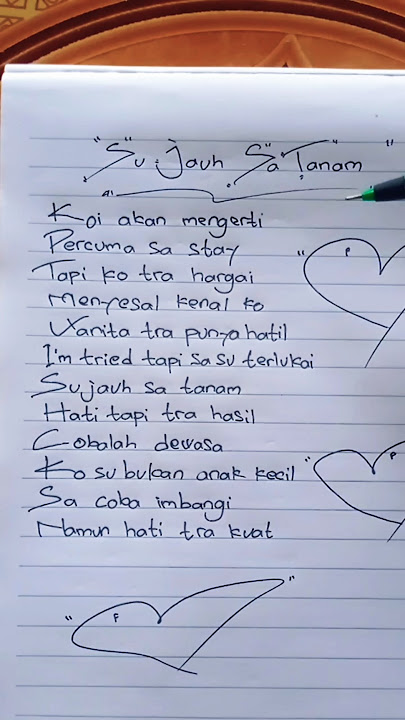 "Su Jauh Sa Tanam"
Koi akan mengerti
Percuma sa stay
Tapi ko tra hargai
Menyesal kenal ko
Wanita tra punya hatil
I'm tried tapi sa su terlukai
Su jauh sa tanam
Hati tapi tra hasil
Cobalah dewasa
Ko su bukan anak kecil
Sa coba imbangi
Namun hati tra kuat